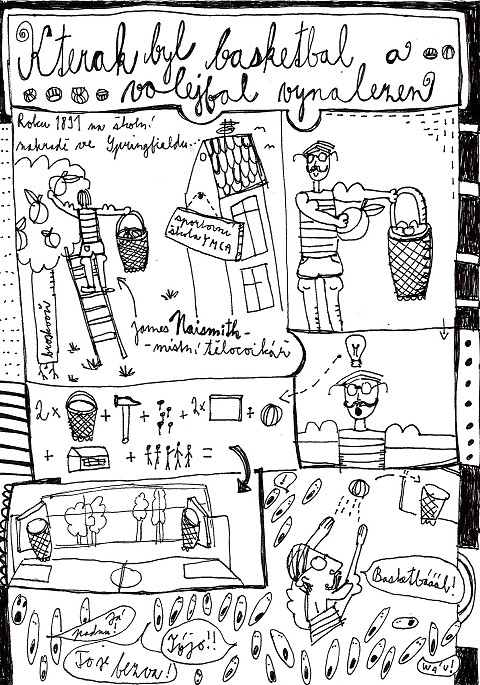 Kterak byl basketbal a
volejbal vynalezen
Roku 1891 na školní
zahradě ve Springfieldu..
sportovní
škola YMCA
broskvoň
James Naismith -
- místní tělocvikář
2x + + + 2x +
+ + =
Basketbááál!
Jójo!!
To je bezva!
WAU!